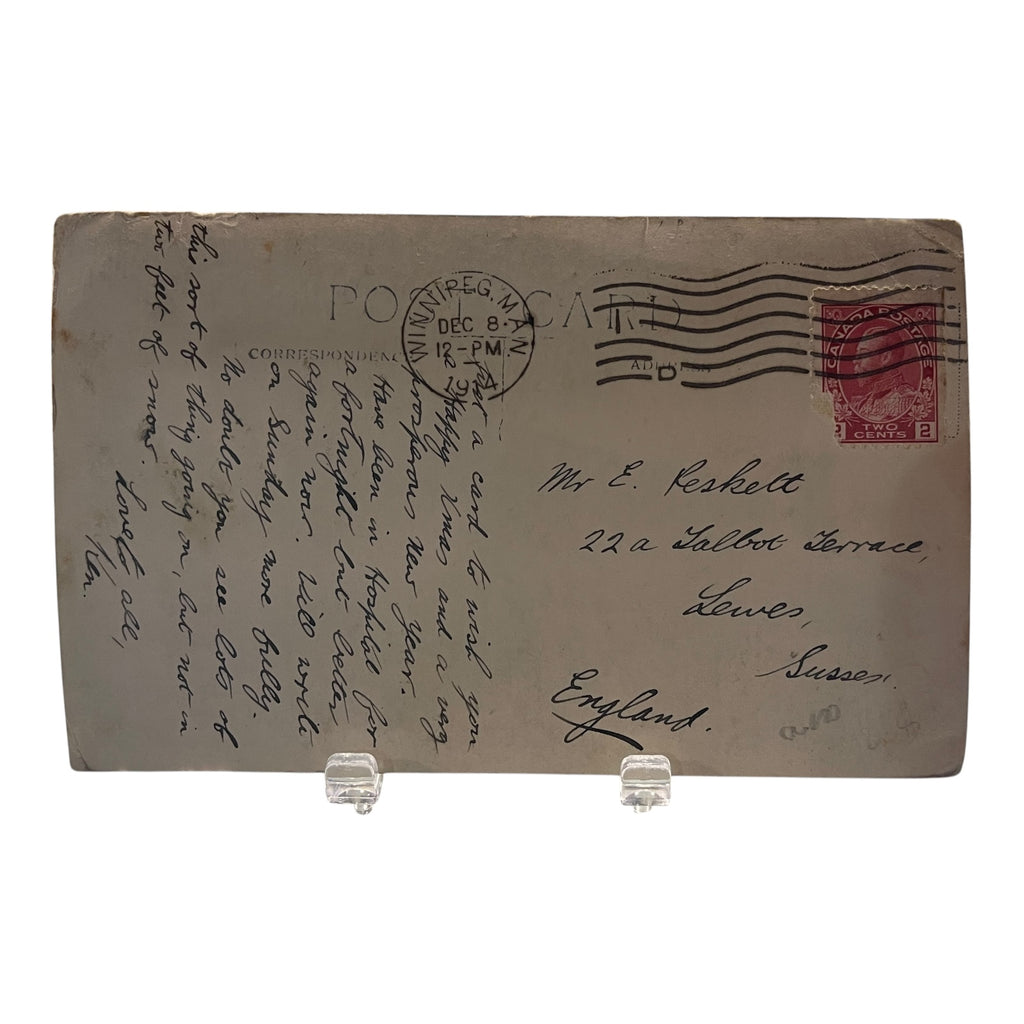 POST CARD
CORRESPONDENC
WINNIPEG, MAN
DEC 8
12-PM
191
D
CANADA POSTAGE
TWO
CENTS
2
2
Mr E. Peskett
22a Talbot Terrace,
Lewes,
Sussex.
England.
a card to wish you
a Happy Xmas and a very
prosperous New Year.
Have been in Hospital for
a fortnight but better
again now. Will write
on Sunday more fully.
No doubt you see lots of
this sort of thing going on, but not in
two feet of snow.
Love to all,
Ken.